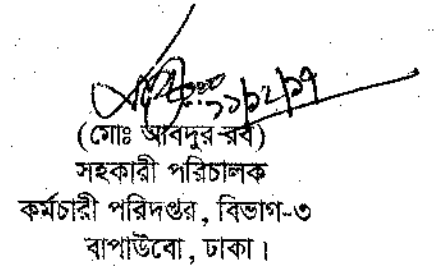 ১১/১২/১৭
(মোঃ আবদুর রব)
সহকারী পরিচালক
কর্মচারী পরিদপ্তর, বিভাগ-৩
বাপাউবো, ঢাকা।